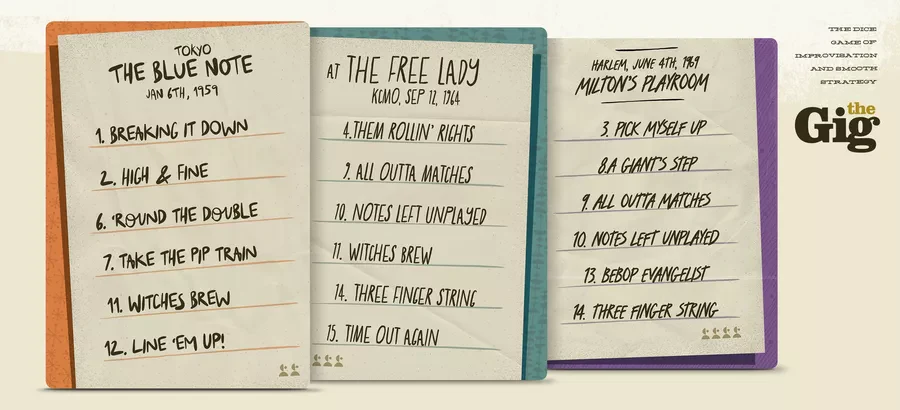 TOKYO
THE BLUE NOTE
JAN 6TH, 1959
1. BREAKING IT DOWN
2. HIGH & FINE
6. 'ROUND THE DOUBLE
7. TAKE THE PIP TRAIN
11. WITCHES BREW
12. LINE 'EM UP!
AT THE FREE LADY
KCMO, SEP 12, 1964
4. THEM ROLLIN' RIGHTS
9. ALL OUTTA MATCHES
10. NOTES LEFT UNPLAYED
11. WITCHES BREW
14. THREE FINGER STRING
15. TIME OUT AGAIN
HARLEM, JUNE 4TH, 1969
MILTON'S PLAYROOM
3. PICK MYSELF UP
8. A GIANT'S STEP
9. ALL OUTTA MATCHES
10. NOTES LEFT UNPLAYED
13. BEBOP EVANGELIST
14. THREE FINGER STRING
THE DICE
GAME OF
IMPROVISATION
AND SMOOTH
STRATEGY
the
Gig